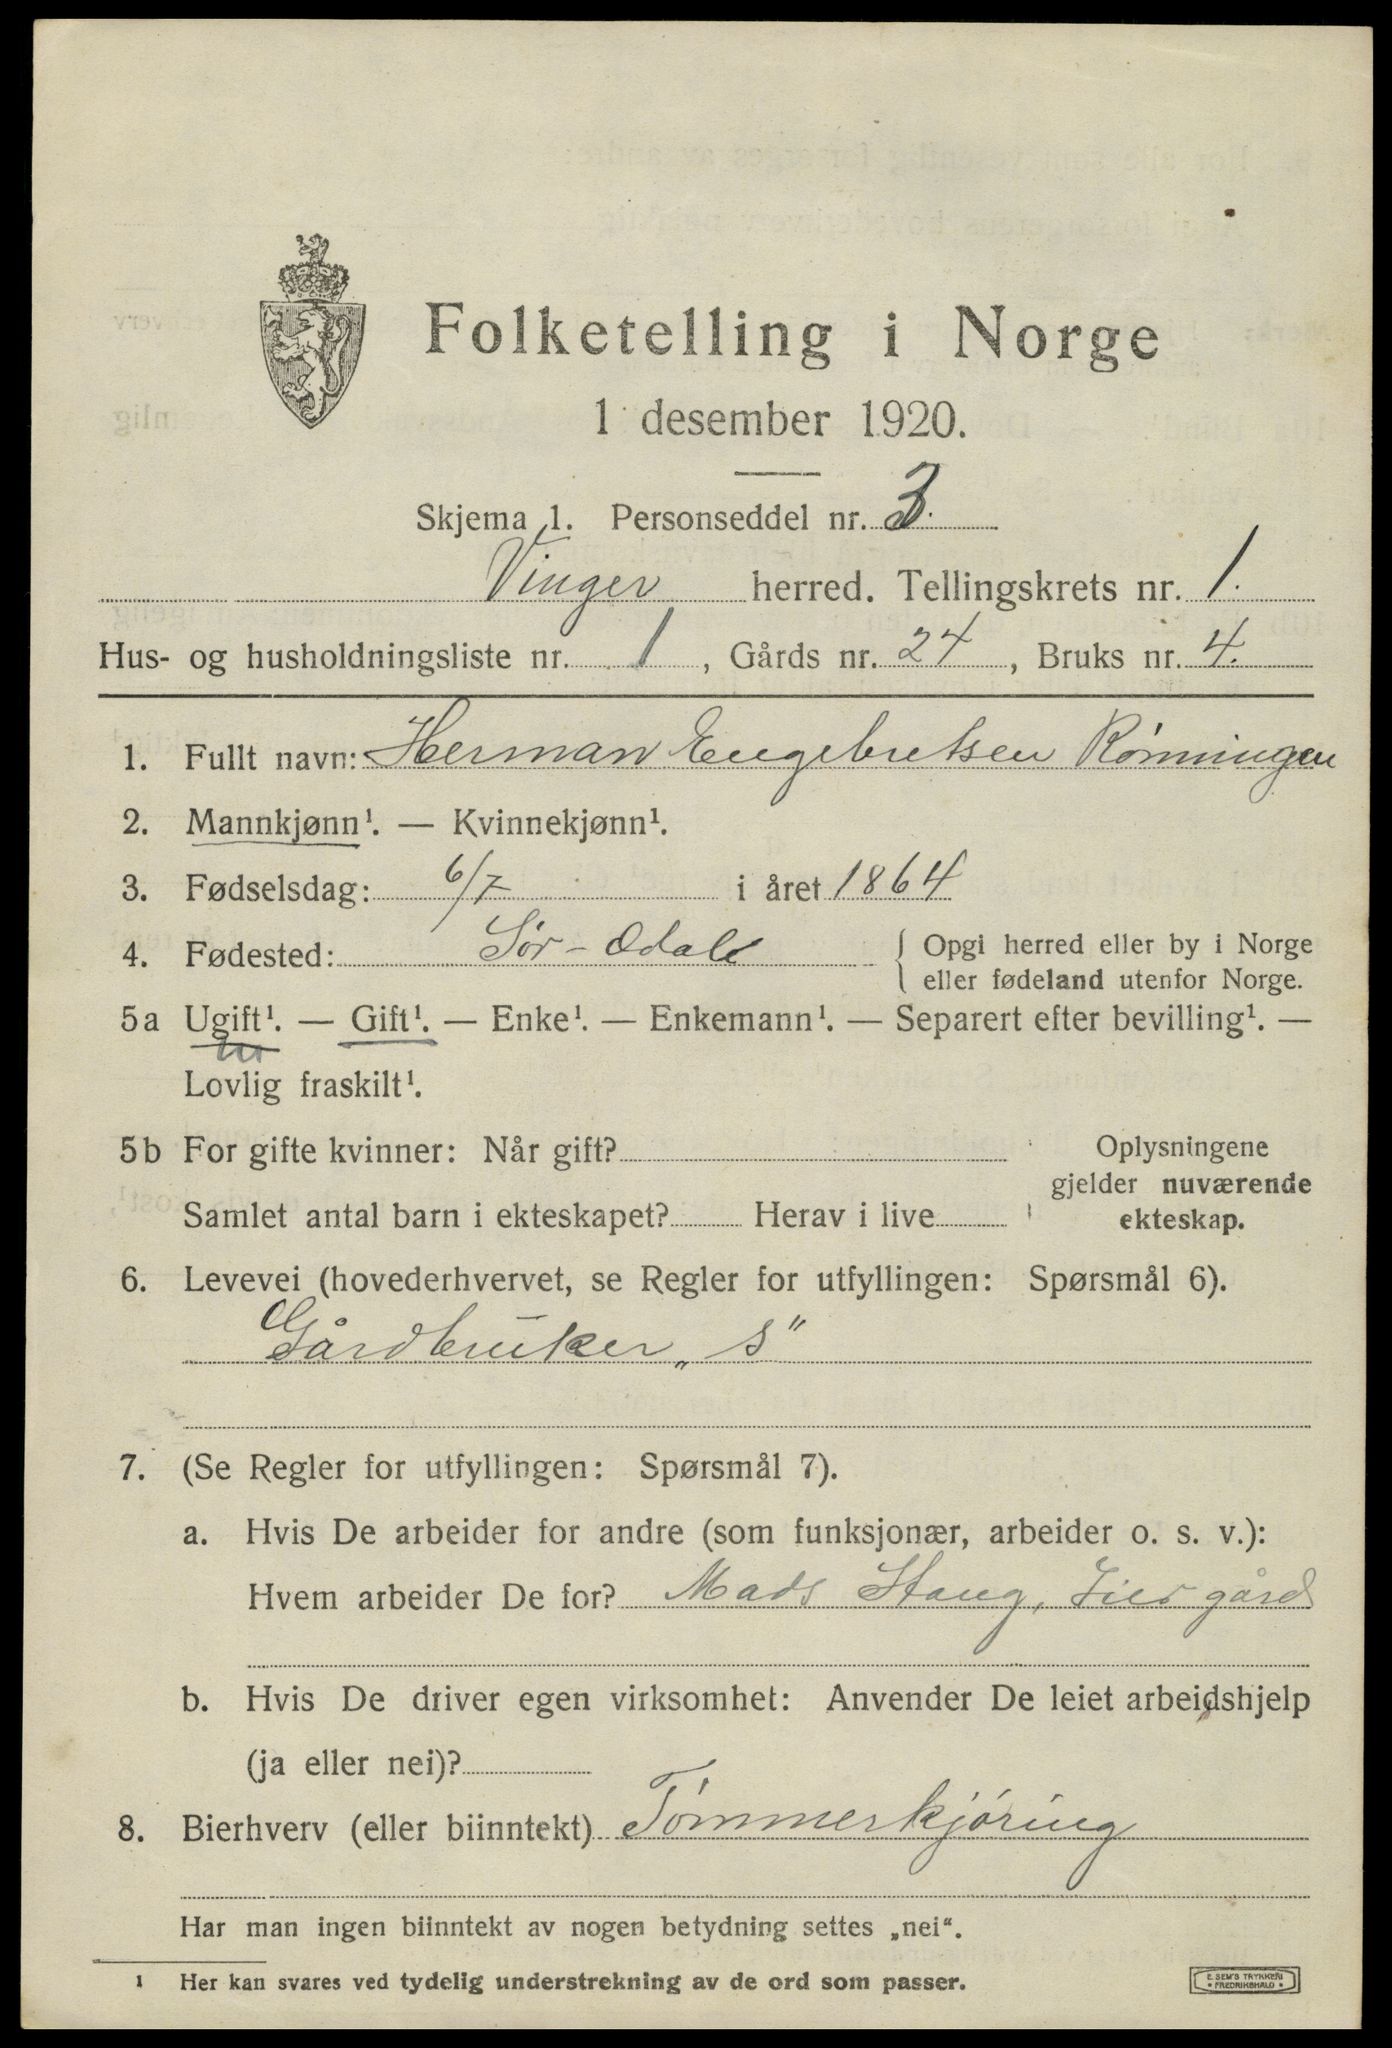 Folketelling i Norge
1 desember 1920.
Skjema 1. Personseddel nr. 3.
Vinger herred. Tellingskrets nr. 1.
Hus- og husholdningsliste nr. 1, Gårds nr. 24, Bruks nr. 4.
1. Fullt navn: Herman Engebretsen Rønningen
2. Mannkjønn¹. — Kvinnekjønn¹.
3. Fødselsdag: 6/7 i året 1864
4. Fødested: Sør-Odale { Opgi herred eller by i Norge
eller fødeland utenfor Norge.
5a Ugift¹. — Gift¹. — Enke¹. — Enkemann¹. — Separert efter bevilling¹. —
Lovlig fraskilt¹.
5b For gifte kvinner: Når gift? Oplysningene
gjelder nuværende
Samlet antal barn i ekteskapet? Herav i live ekteskap.
6. Levevei (hovederhvervet, se Regler for utfyllingen: Spørsmål 6).
Gårdbruker „s"
7. (Se Regler for utfyllingen: Spørsmål 7).
a. Hvis De arbeider for andre (som funksjonær, arbeider o. s. v.):
Hvem arbeider De for? Mads Stang, gård
b. Hvis De driver egen virksomhet: Anvender De leiet arbeidshjelp
(ja eller nei)?
8. Bierhverv (eller biinntekt) Tømmerkjøring
Har man ingen biinntekt av nogen betydning settes „nei“.
¹ Her kan svares ved tydelig understrekning av de ord som passer.
E. SEM'S TRYKKERI
• FREDRIKSHALD •